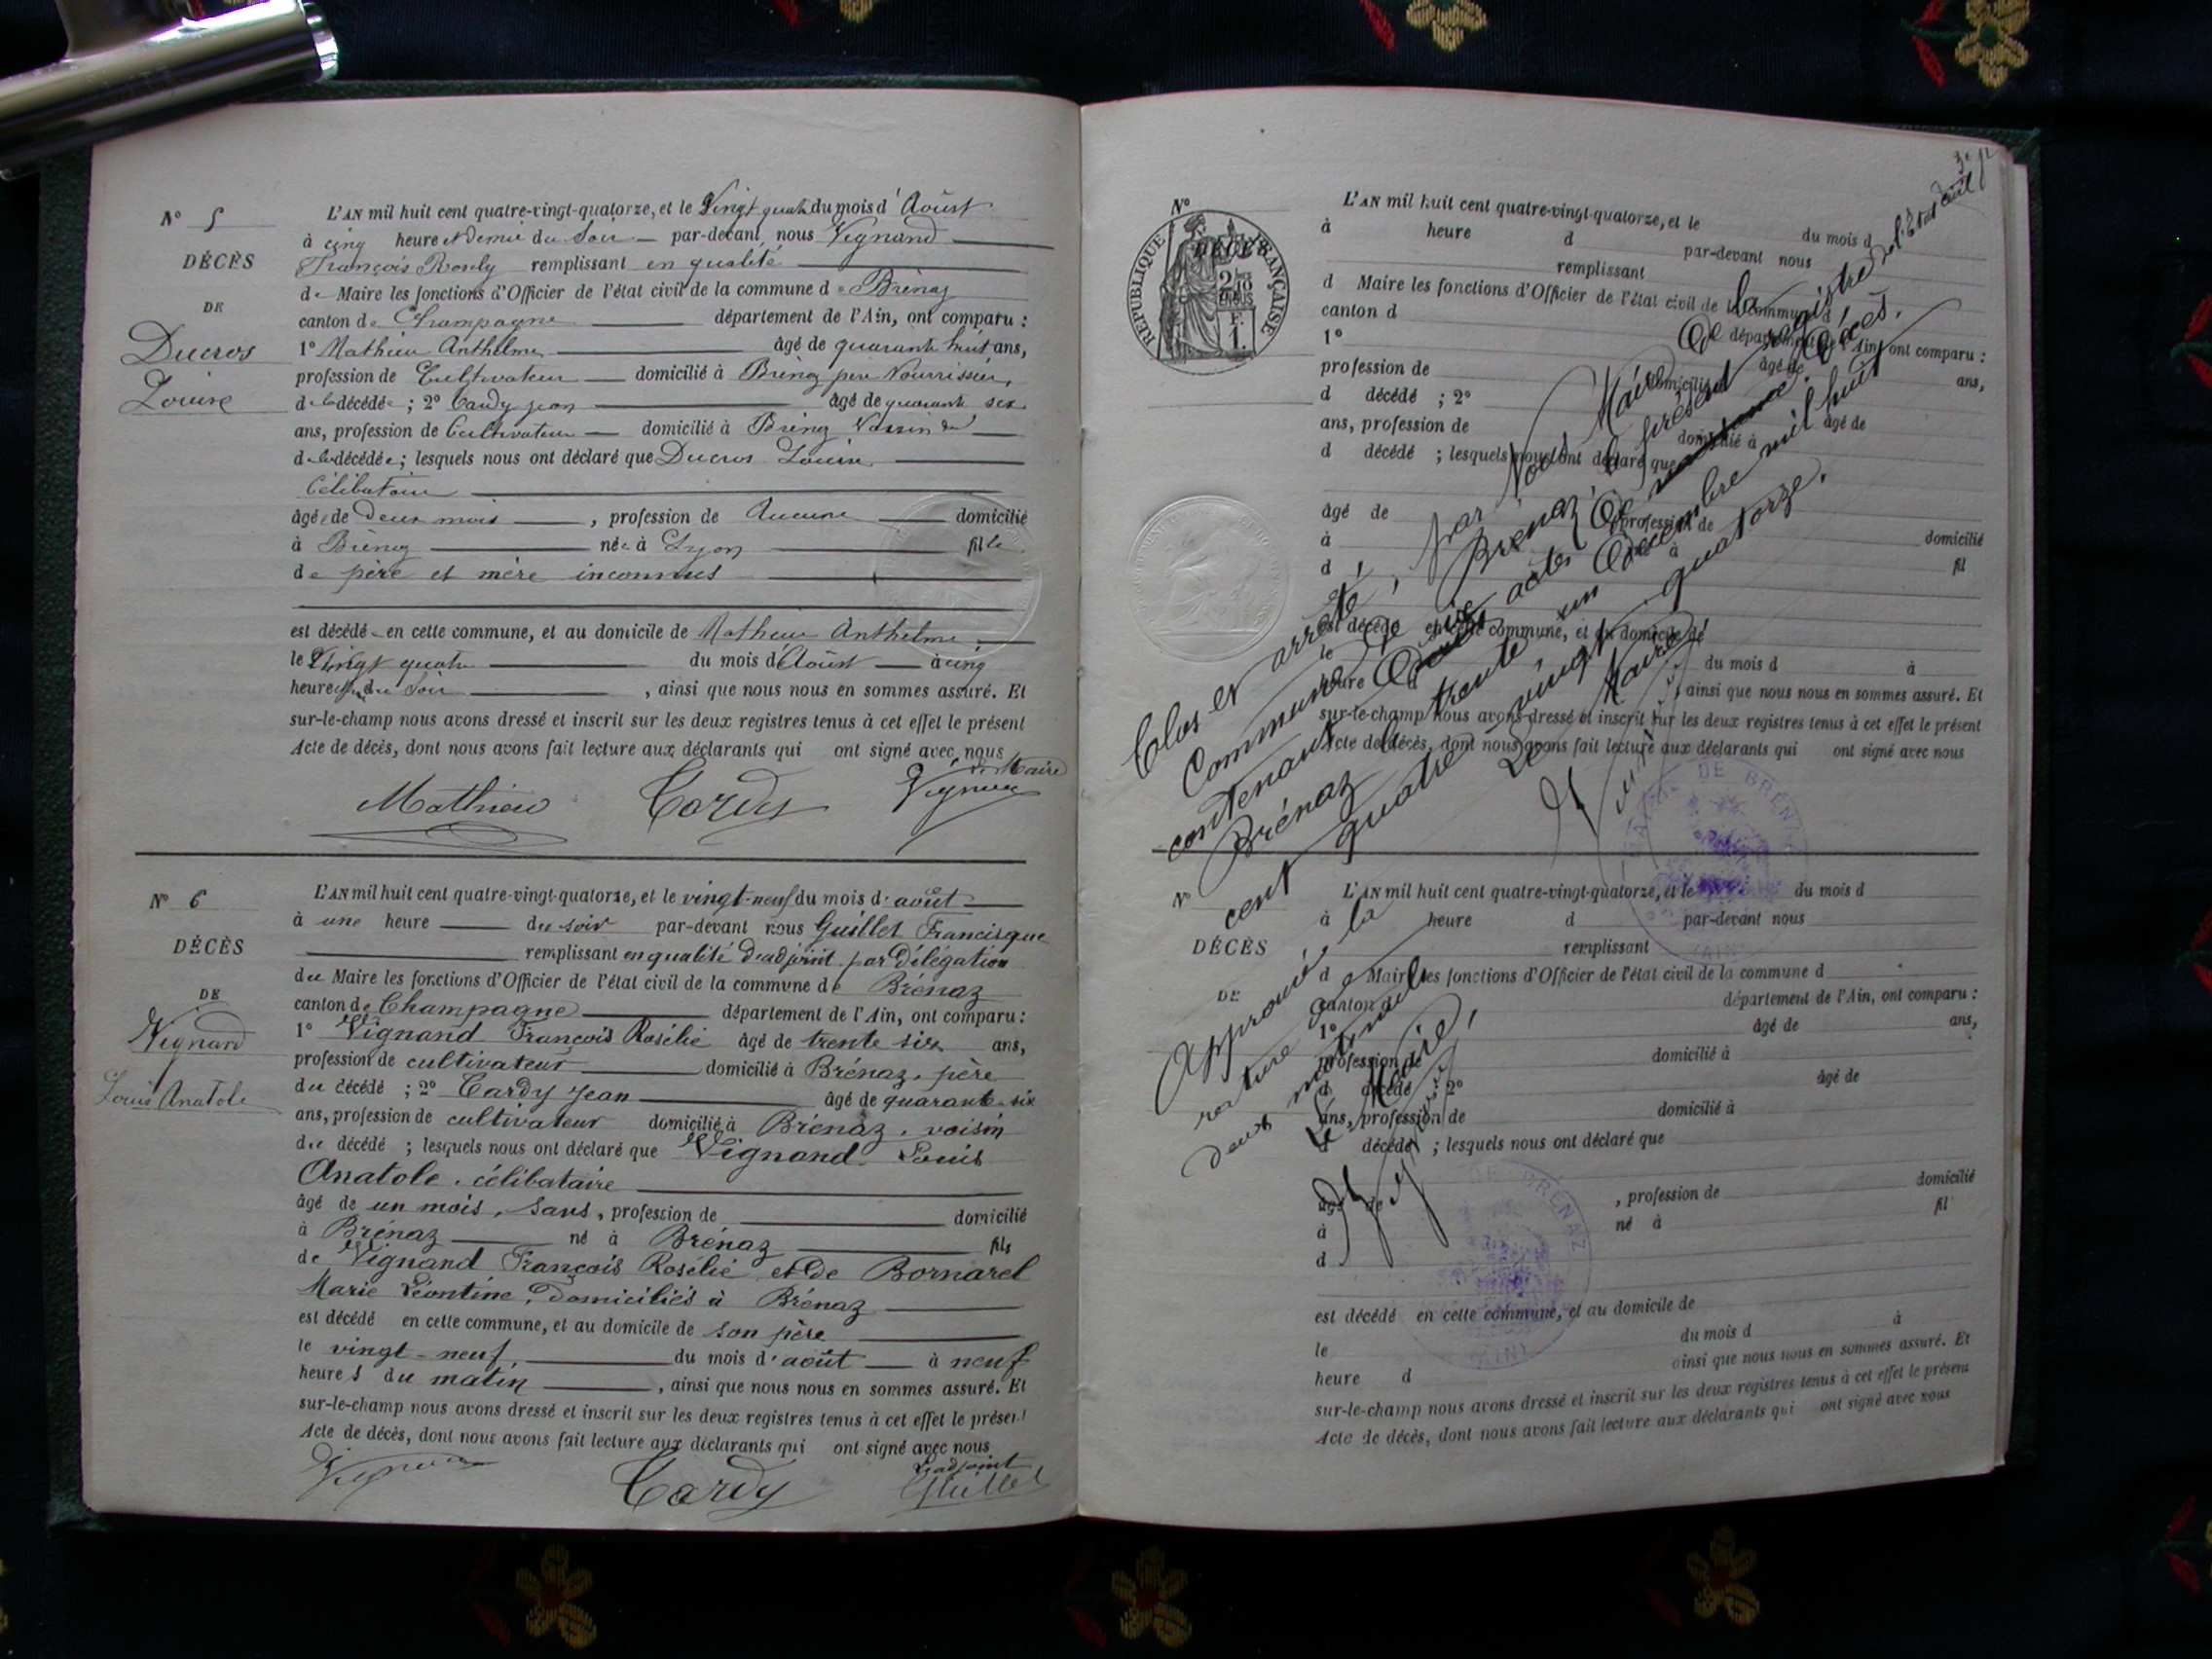 N° 5
DÉCÈS
DE
Ducros
Louise
L'AN mil huit cent quatre-vingt-quatorze, et le Vingt quatre du mois d'Août
à cinq heure et demie du Soir par-devant, nous Vignand
François Rosély remplissant en qualité
de Maire les fonctions d'Officier de l'état civil de la commune de Brénaz
canton de Champagne département de l'Ain, ont comparu :
1° Mathieu Anthelme âgé de quarante huit ans,
profession de Cultivateur domicilié à Brénaz père Nourrissier,
de la décédée ; 2° Cardy jean âgé de quarante six
ans, profession de Cultivateur domicilié à Brénaz Voisin de
de la décédée ; lesquels nous ont déclaré que Ducros Louise
Célibataire
âgée de deux mois , profession de Aucune domicilié
à Brénaz née à Lyon fille
de père et mère inconnus
est décédé en cette commune, et au domicile de Mathieu Anthelme
le Vingt quatre du mois d'Août à cinq
heure du Soir , ainsi que nous nous en sommes assuré. Et
sur-le-champ nous avons dressé et inscrit sur les deux registres tenus à cet effet le présent
Acte de décès, dont nous avons fait lecture aux déclarants qui ont signé avec nous
Maire
Mathieu Cardy Vignand
N° 6
DÉCÈS
DE
Vignand
Louis Anatole
L'AN mil huit cent quatre-vingt-quatorze, et le vingt-neuf du mois d'août
à une heure du soir par-devant nous Guillet Francisque
remplissant en qualité d'adjoint par Délégation
du Maire les fonctions d'Officier de l'état civil de la commune de Brénaz
canton de Champagne département de l'Ain, ont comparu :
1° Vignand François Rosélie âgé de trente six ans,
profession de cultivateur domicilié à Brénaz, père
du décédé ; 2° Cardy Jean âgé de quarante-six
ans, profession de cultivateur domicilié à Brénaz, voisin
du décédé ; lesquels nous ont déclaré que Vignand Louis
Anatole, célibataire
âgé de un mois, sans, profession de domicilié
à Brénaz né à Brénaz fils
de Vignand François Rosélie et de Bornarel
Marie Léontine, domiciliés à Brénaz
est décédé en cette commune, et au domicile de son père
le vingt-neuf, du mois d'août à neuf
heures du matin , ainsi que nous nous en sommes assuré. Et
sur-le-champ nous avons dressé et inscrit sur les deux registres tenus à cet effet le présent
Acte de décès, dont nous avons fait lecture aux déclarants qui ont signé avec nous
L'adjoint
Vignand Cardy Guillet
N°
RÉPUBLIQUE FRANÇAISE
DÉCÈS
2/10 EN SUS
F. 1.
L'AN mil huit cent quatre-vingt-quatorze, et le du mois d
à heure d par-devant nous
remplissant
d Maire les fonctions d'Officier de l'état civil de la commune d
canton d département de l'Ain, ont comparu :
1° âgé de ans,
profession de domicilié à
d décédé ; 2° âgé de
ans, profession de domicilié à
d décédé ; lesquels nous ont déclaré que
âgé de , profession de domicilié
à né à fil
d
est décédé en cette commune, et au domicile de
le du mois d à
heure d , ainsi que nous nous en sommes assuré. Et
sur-le-champ nous avons dressé et inscrit sur les deux registres tenus à cet effet le présent
Acte de décès, dont nous avons fait lecture aux déclarants qui ont signé avec nous
Clos et arrêté, par Nous Maire de la
Commune de Brénaz, le présent registre de l'État civil
contenant six actes de décès.
Brénaz le trente un Décembre mil huit
cent quatre vingt quatorze.
Le Maire
MAIRIE DE BRÉNAZ
(AIN)
N°
DÉCÈS
DE
L'AN mil huit cent quatre-vingt-quatorze, et le du mois d
à heure d par-devant nous
remplissant
d Maire les fonctions d'Officier de l'état civil de la commune d
canton d département de l'Ain, ont comparu :
1° âgé de ans,
profession de domicilié à
d décédé ; 2° âgé de
ans, profession de domicilié à
d décédé ; lesquels nous ont déclaré que
âgé de , profession de domicilié
à né à fil
d
est décédé en cette commune, et au domicile de
le du mois d à
heure d ainsi que nous nous en sommes assuré. Et
sur-le-champ nous avons dressé et inscrit sur les deux registres tenus à cet effet le présent
Acte de décès, dont nous avons fait lecture aux déclarants qui ont signé avec nous
Approuvé la
rature de
deux mots nuls
Le Maire,
MAIRIE DE BRÉNAZ
(AIN)